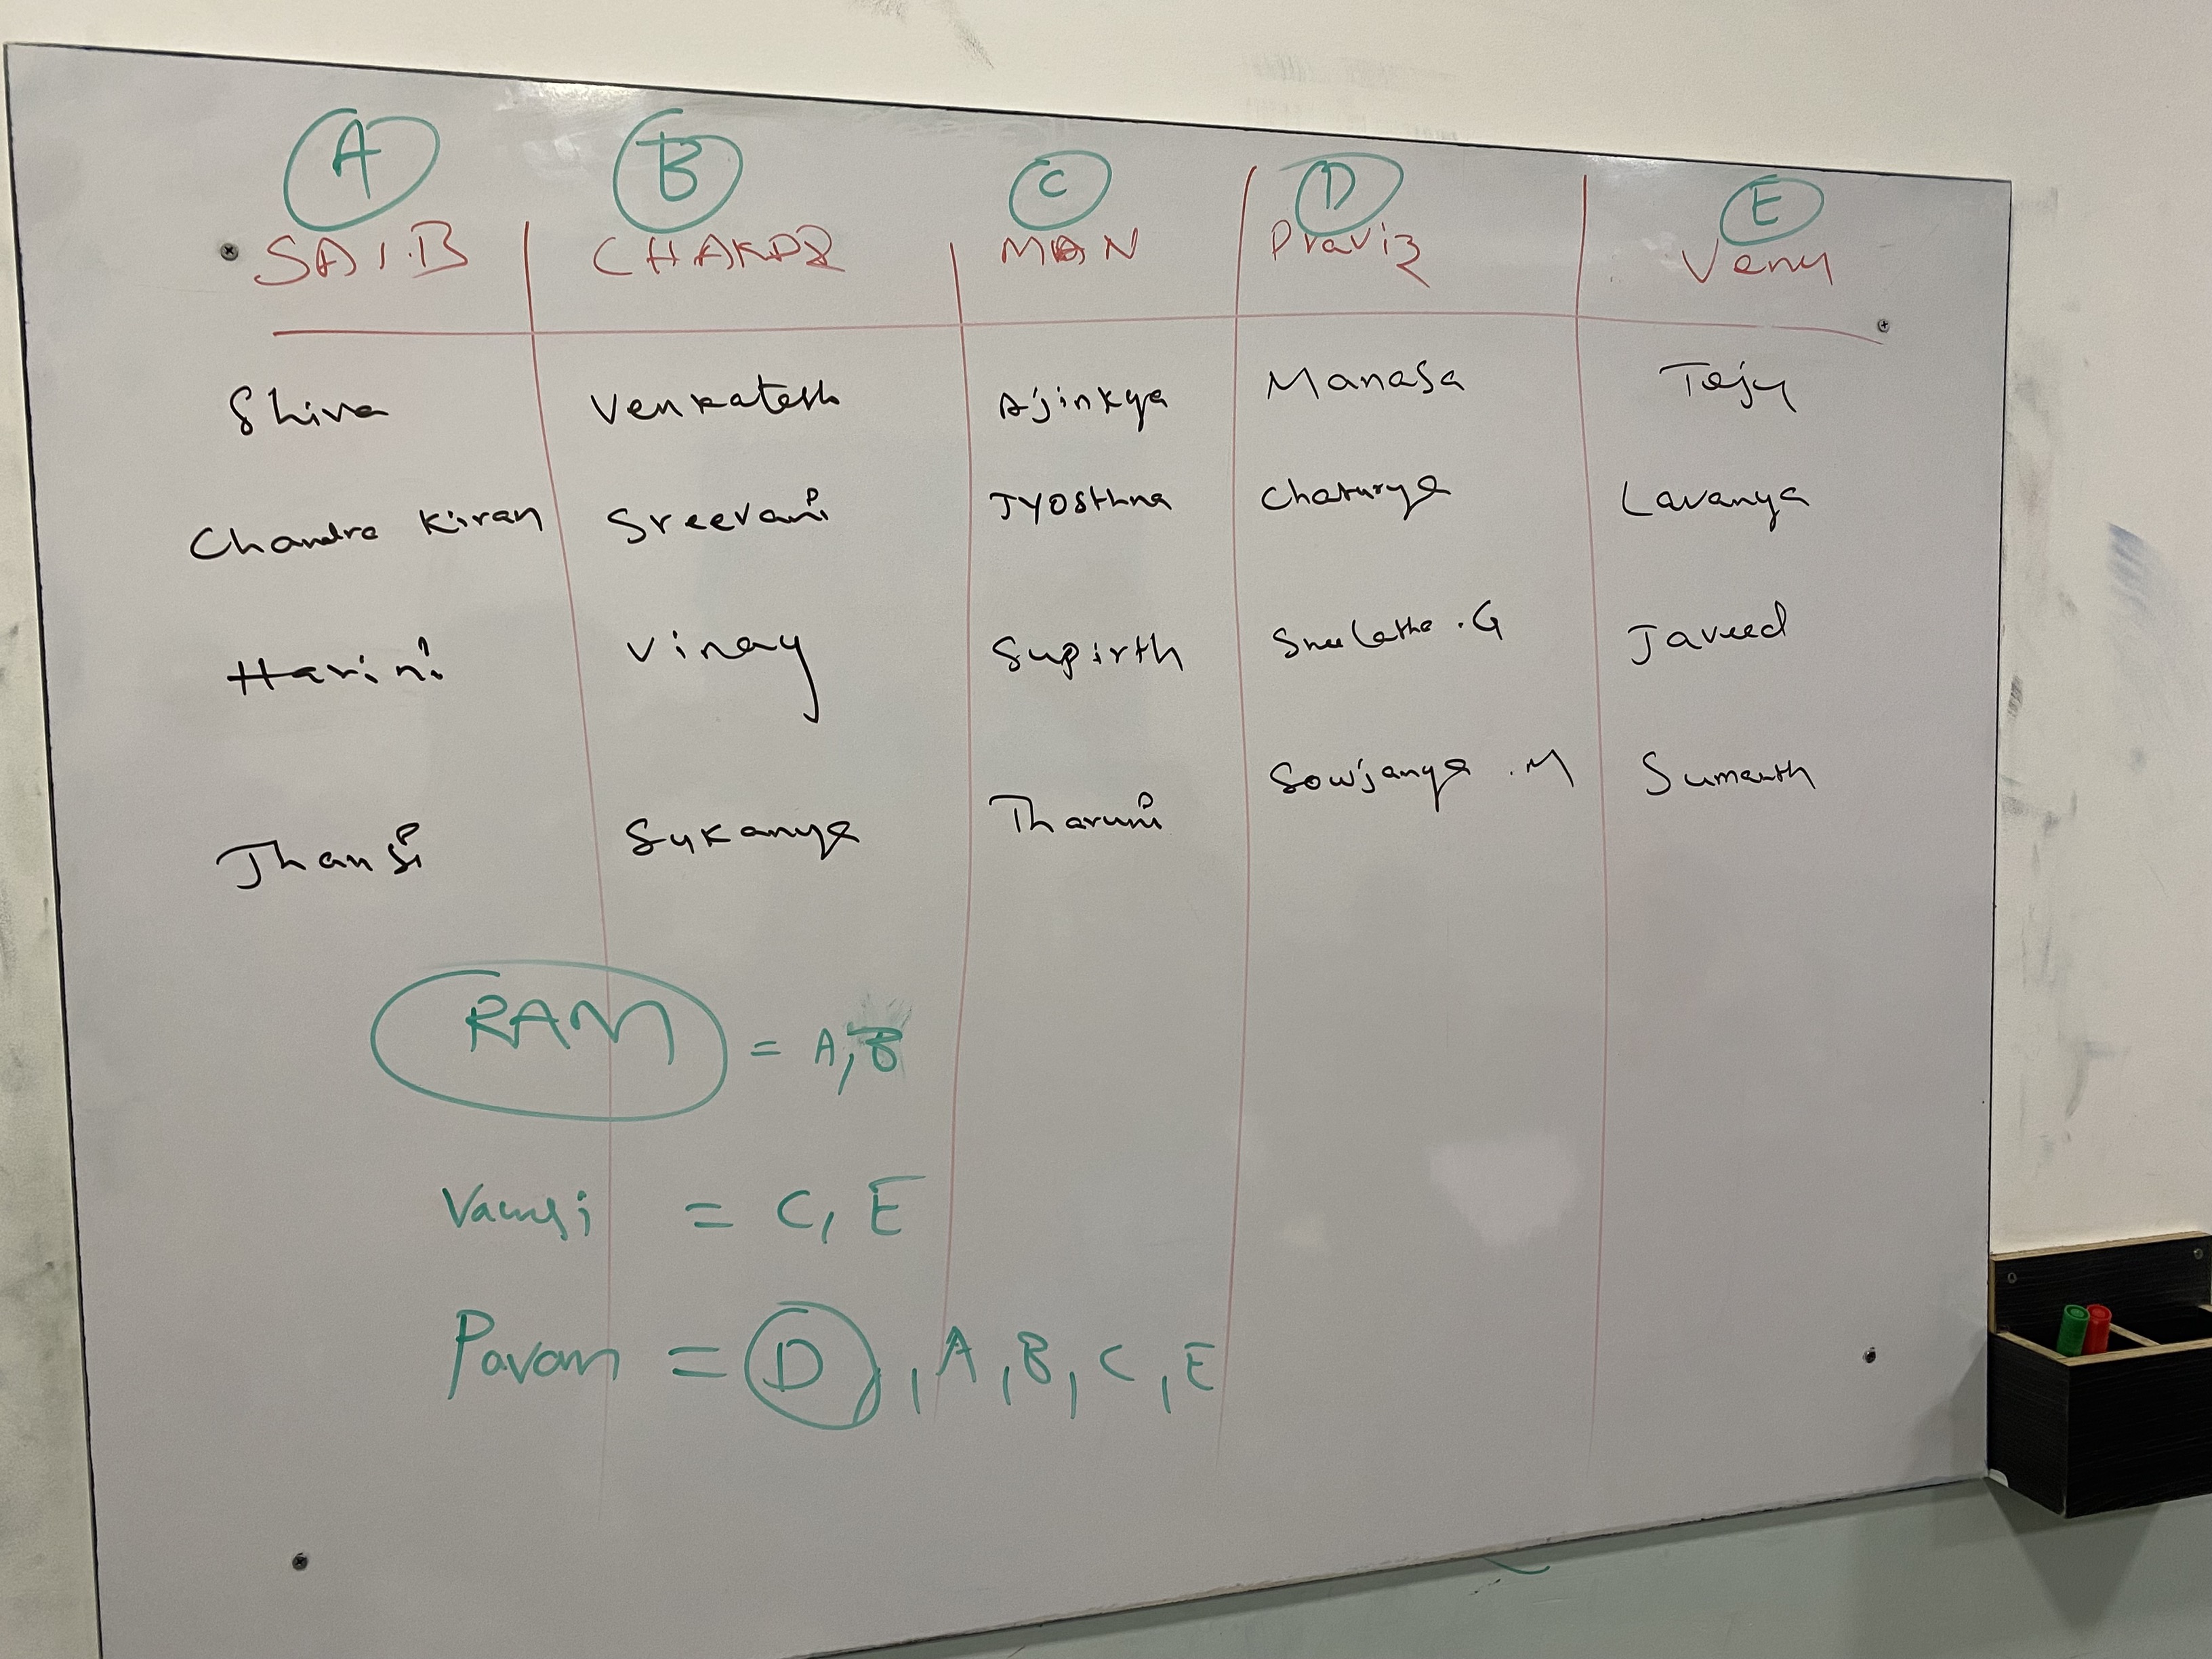 A B C D E
SAI.B MAN Praviz Venu
Shiva Venkatesh Ajinkya Manasa Teju
Chandra Kiran Sreevani Jyosthna Chaturya Lavanya
Harini Vinay Supirth Sreelatha.G Javeed
Jhansi Sukanya Tharuni Sowjanya.M Sumanth
RAM = A, B
Vamsi = C, E
Pavan = D, A, B, C, E